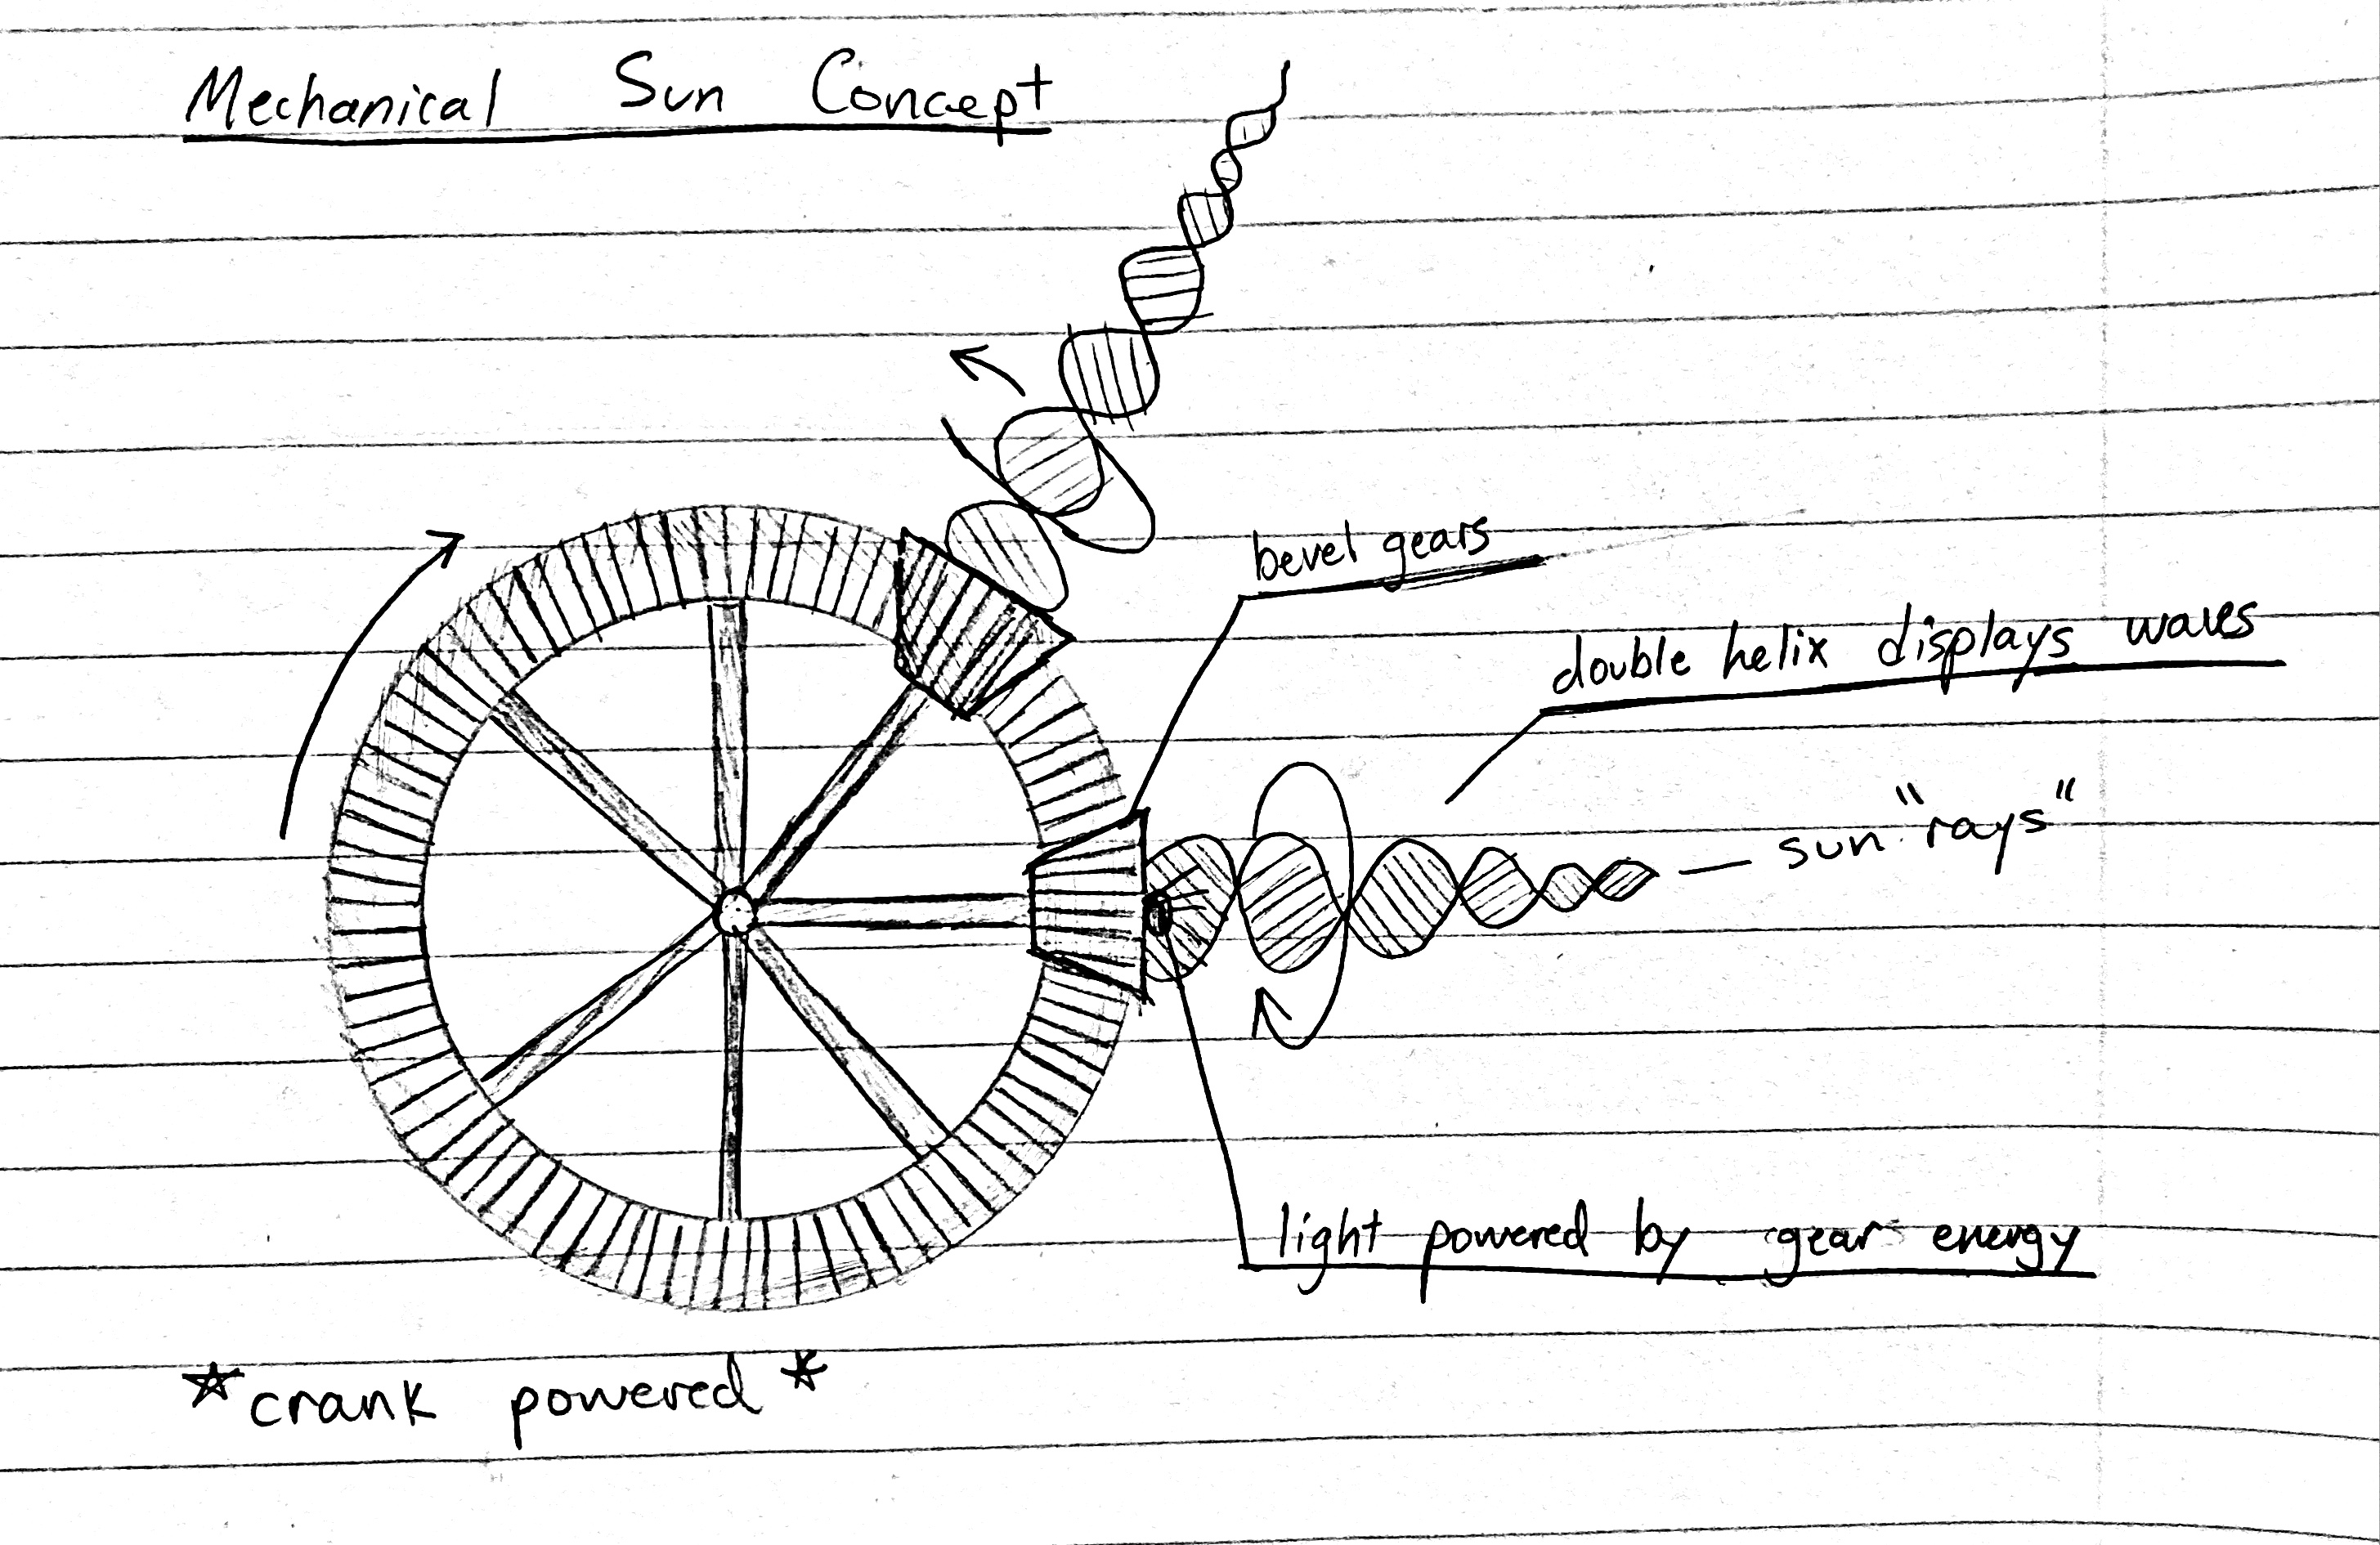 Mechanical Sun Concept
bevel gears
double helix displays waves
sun "rays"
light powered by gear energy
*crank powered*